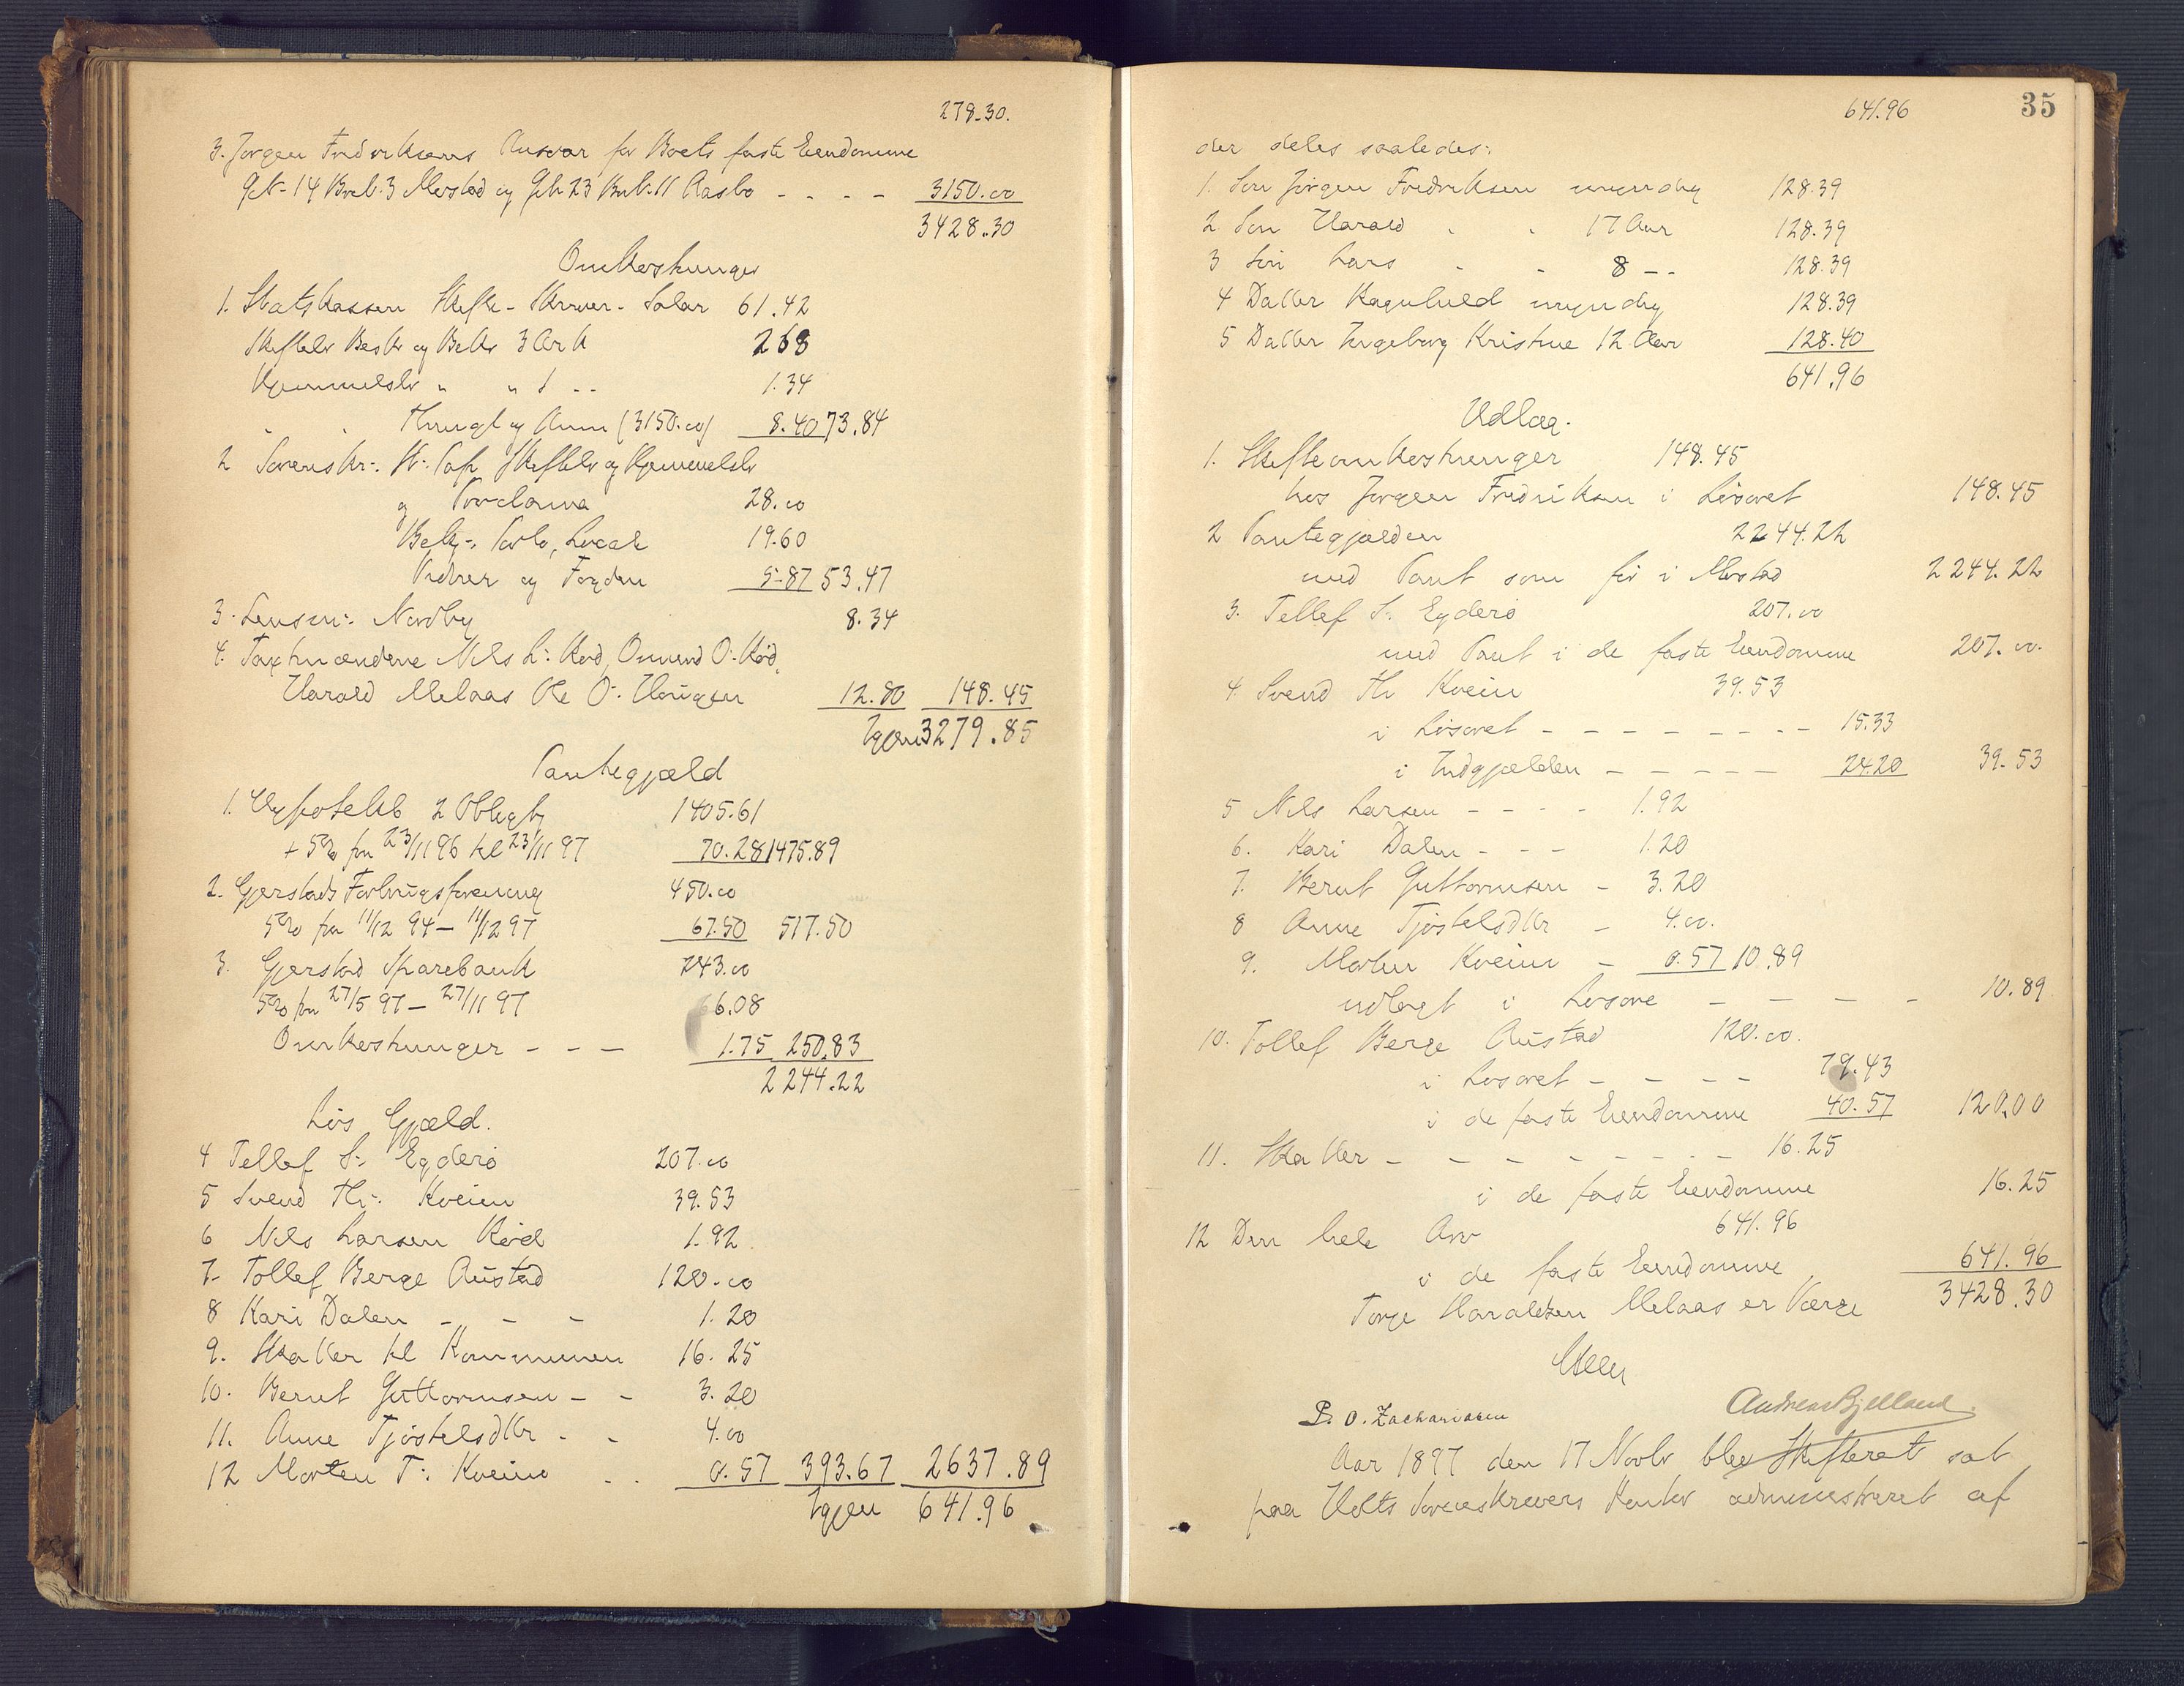 278.30.
3. Jørgen Fredriksens Ansvar for Boets faste Eiendomme
Gb. 14 Brb. 3 Mostad og Gb 23 Brb. 11 Aasbo - - - - 3150.00
3428.30
Omkostninger
1. Statskassen Skifte-Skriver-Salær 61.42
Skiftebr Besk og Bekr 3 Ark 268
Hjemmelsbr " " 1 -- 1.34
" " Thingl og Anm (3150.00) 8.40 73.84
2 Sorenskr: St: Pap Skiftebr og Hjemmelsbr
og Proclama 28.00
Bekj:, Porto, Locale 19.60
Vidner og Fogden 5.87 53.47
3. Lensm: Nordby 8.34
4. Taxtmændene Nils L: Kød, Omund O: Kød,
Harald Melaas Ole O: Haugen 12.80 148.45
Igjen 3279.85
Pantegjæld
1. Hypotekb 2 Obligtr 1405.61
+ 5% fra 23/11 96 til 23/11 97 70.28 1475.89
2. Gjerstads Forbrugsforening 450.00
5% fra 11/12 94 – 11/12 97 67.50 517.50
3. Gjerstad Sparebank 243.00
5% fra 27/5 97 – 27/11 97 6.08
Omkostninger - - - 1.75 250.83
2244.22
Løs Gjæld.
4 Tellef S: Egderø 207.00
5 Svend Th: Kveim 39.53
6 Nils Larsen Kød 1.92
7. Tollef Berge Austad 120.00
8 Kari Dalen - - - 1.20
9. Skatter til Kommunen 16.25
10. Bernt Guttormsen - - 3.20
11. Anne Tjøstelsdtr - - 4.00
12 Morten T: Kveim . . 0.57 393.67 2637.89
Igjen 641.96
35
641.96
der deles saaledes:
1. Søn Jørgen Fredriksen myndig 128.39
2 Søn Harald " " 17 Aar 128.39
3 Søn Lars " " 8 -- 128.39
4 Datter Ragnhild myndig 128.39
5 Datter Ingeborg Kristine 12 Aar 128.40
641.96
Udlæg.
1. Skifteomkostninger 148.45
hos Jørgen Fredriksen i Løsøret 148.45
2 Pantegjælden 2244.22
med Pant som før i Mostad 2244.22
3. Tellef S: Egderø 207.00
med Pant i de faste Eiendomme 207.00
4. Svend Th Kveim 39.53
i Løsøret - - - - - - - - 15.33
i Indgjælden - - - - - 24.20 39.53
5 Nils Larsen - - - - 1.92
6. Kari Dalen - - - 1.20
7. Bernt Guttormsen - 3.20
8 Anne Tjøstelsdtr - 4.00.
9. Morten Kveim - 0.57 10.89
udlagt i Løsøre - - - - 10.89
10. Tollef Berge Austad 120.00.
i Løsøret - - - - 79.43
i de faste Eiendomme 40.57 120.00
11. Skatter - - - - - - - - 16.25
i de faste Eiendomme 16.25
12 Den hele Arv 641.96
i de faste Eiendomme 641.96
Torje Haraldsen Melaas er Værge 3428.30
P. O. Zachariasen Andreas Bjelland
Aar 1897 den 17 Novbr blev Skifteret sat
paa Holts Sorenskrivers Kontor administreret af